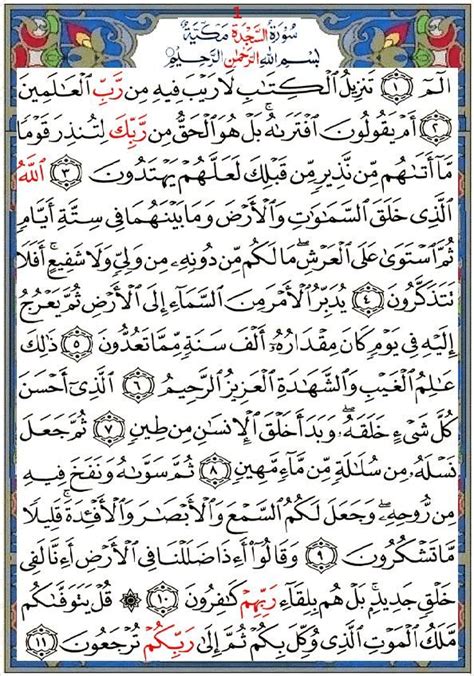 1
سُورَةُ السَّجْدَةِ مَكِّيَّةٌ
بِسْمِ اللَّهِ الرَّحْمَٰنِ الرَّحِيمِ
الٓمٓ ۝١ تَنزِيلُ ٱلْكِتَٰبِ لَا رَيْبَ فِيهِ مِن رَّبِّ ٱلْعَٰلَمِينَ
۝٢ أَمْ يَقُولُونَ ٱفْتَرَىٰهُ ۚ بَلْ هُوَ ٱلْحَقُّ مِن رَّبِّكَ لِتُنذِرَ قَوْمًا
مَّآ أَتَىٰهُم مِّن نَّذِيرٍ مِّن قَبْلِكَ لَعَلَّهُمْ يَهْتَدُونَ ۝٣ ٱللَّهُ
ٱلَّذِى خَلَقَ ٱلسَّمَٰوَٰتِ وَٱلْأَرْضَ وَمَا بَيْنَهُمَا فِى سِتَّةِ أَيَّامٍ
ثُمَّ ٱسْتَوَىٰ عَلَى ٱلْعَرْشِ ۖ مَا لَكُم مِّن دُونِهِۦ مِن وَلِىٍّ وَلَا شَفِيعٍ ۚ أَفَلَا
تَتَذَكَّرُونَ ۝٤ يُدَبِّرُ ٱلْأَمْرَ مِنَ ٱلسَّمَآءِ إِلَى ٱلْأَرْضِ ثُمَّ يَعْرُجُ
إِلَيْهِ فِى يَوْمٍ كَانَ مِقْدَارُهُۥٓ أَلْفَ سَنَةٍ مِّمَّا تَعُدُّونَ ۝٥ ذَٰلِكَ
عَٰلِمُ ٱلْغَيْبِ وَٱلشَّهَٰدَةِ ٱلْعَزِيزُ ٱلرَّحِيمُ ۝٦ ٱلَّذِىٓ أَحْسَنَ
كُلَّ شَىْءٍ خَلَقَهُۥ ۖ وَبَدَأَ خَلْقَ ٱلْإِنسَٰنِ مِن طِينٍ ۝٧ ثُمَّ جَعَلَ
نَسْلَهُۥ مِن سُلَٰلَةٍ مِّن مَّآءٍ مَّهِينٍ ۝٨ ثُمَّ سَوَّىٰهُ وَنَفَخَ فِيهِ
مِن رُّوحِهِۦ ۖ وَجَعَلَ لَكُمُ ٱلسَّمْعَ وَٱلْأَبْصَٰرَ وَٱلْأَفْـِٔدَةَ ۚ قَلِيلًا
مَّا تَشْكُرُونَ ۝٩ وَقَالُوٓا۟ أَءِذَا ضَلَلْنَا فِى ٱلْأَرْضِ أَءِنَّا لَفِى
خَلْقٍ جَدِيدٍۭ ۚ بَلْ هُم بِلِقَآءِ رَبِّهِمْ كَٰفِرُونَ ۝١٠ ۞ قُلْ يَتَوَفَّىٰكُم
مَّلَكُ ٱلْمَوْتِ ٱلَّذِى وُكِّلَ بِكُمْ ثُمَّ إِلَىٰ رَبِّكُمْ تُرْجَعُونَ ۝١١